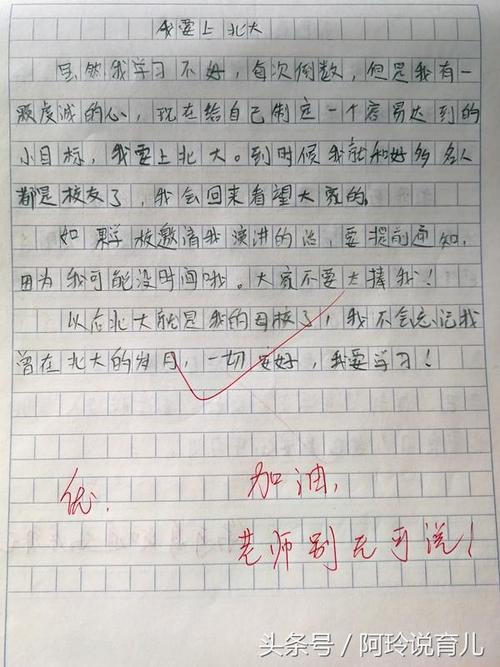 我要上北大
虽然我学习不好，每次倒数，但是我有一
颗虔诚的心，现在给自己制定一个容易达到的
小目标，我要上北大。到时候我就和好多名人
都是校友了，我会回来看望大家的。
如果学校邀请我演讲的话，要提前通知，
因为我可能没时间哦。大家不要太捧我！
以后北大就是我的母校了，我不会忘记我
曾在北大的岁月，一切安好，我要学习！
优. 加油，
老师别无可说！
头条号/阿玲说育儿